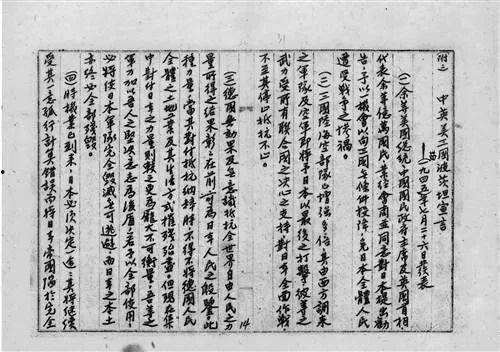 31
附二 中英美三國波茨坦宣言
一九四五年七月二十六日發表
(一)余等美國總統中國國民政府主席及英國首相
代表余等億萬國民業經會商並同意對日本提出勸
告予以一機會以向三國無條件投降免日本全體人民
遭受戰爭之慘禍。
(二)三國陸海空部隊已增強多倍其由西方調來
之軍隊及空軍即將予日本以最後之打擊,彼等之
武力受所有聯合國之決心之支持對日本全面作戰,
不至其停止抵抗不止。
(三)德國無効果及無意識抵抗全世界自由人民之力
量所得之結果彰彰在前可為日本人民之殷鑒,此
種力量當其對付抵抗納粹時不得不將德國人民
全體之土地工業及其生活方式摧殘殆盡但現在集
中對付日本之力量則較之更為龐大不可衡量,吾等之
軍力加以吾人堅決意志為後盾若予以全部使用,
必將使日本軍隊完全毀滅無可逃避而日本之本土
亦終必全部殘毀。
(四)時機業已到來日本必須決定一途其將繼續
受其一意孤行計算錯誤而將日本帝國陷於完全
14